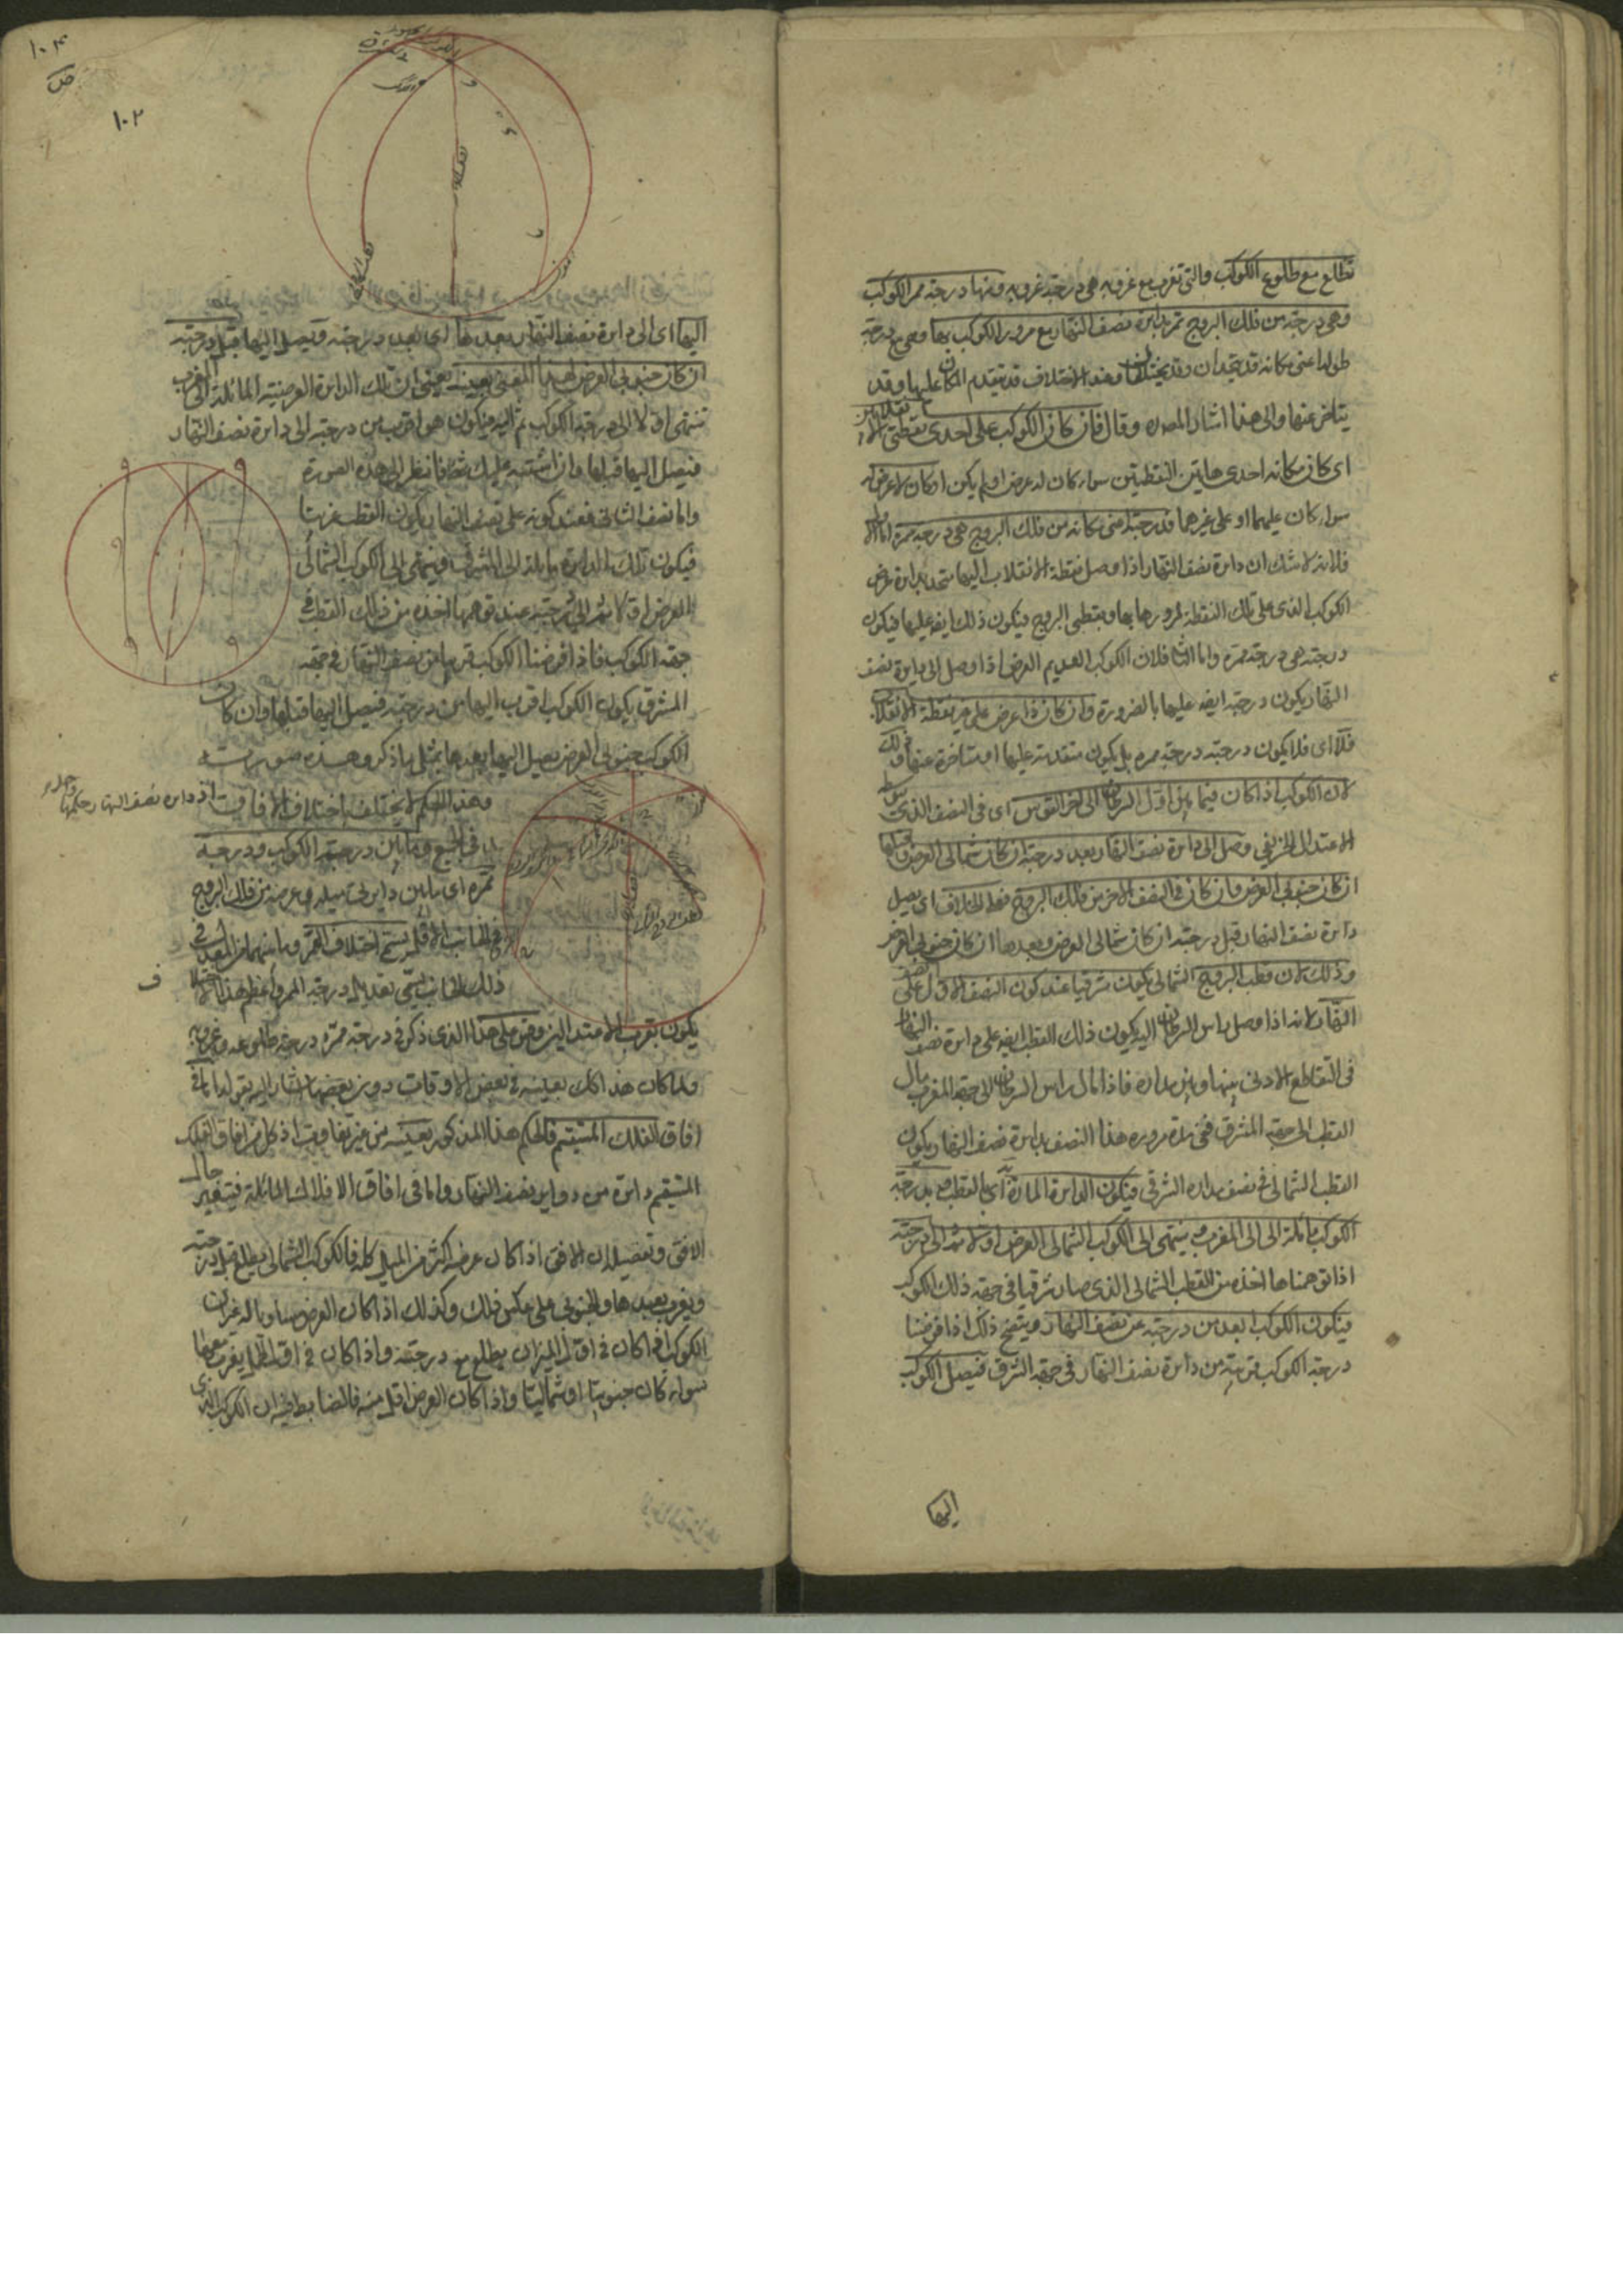 تطلع مع طلوع الكوكب والتي تغرب مع غروبه هي درجة غروبه ومنها درجة ممر الكوكب
وهي درجة من فلك البروج تمر بدائرة نصف النهار مع مرور الكوكب بها وهي مع درجة
طوله اعنى مكانه قد يتحدان وقد يختلفان وعند الاختلاف قد يتقدم المكان عليها وقد
يتاخر عنها والى هذا اشار المصره وقال فان كان الكوكب على احدى نقطتى الانقلابين
اى كان مكانه احدى هاتين النقطتين سواء كان له عرض او لم يكن او كان لا عرض له
سواء كان عليهما او على غيرهما فدرجته اعنى مكانه من فلك البروج هى درجة ممره اما الاول
فلانه لا شك ان دائرة نصف النهار اذا وصل نقطة الانقلاب اليها تتحد بدائرة عرض
الكوكب الذى على تلك النقطة لمرورها بها وبقطبى البروج فيكون ذلك ايضه عليها فيكون
درجته هى درجة ممره واما الثا فلان الكوكب العديم العرض اذا وصل الى دايرة نصف
النهار يكون درجته ايضه عليها بالضرورة وان كان ذا عرض على غير نقطة الانقلاب
فلا اى فلا يكون درجته درجة ممره بل يكون متقدمة عليها او متاخرة عنها وذلك
لان الكوكب اذا كان فيما بين اول السرطان الى اخر القوس اى فى النصف الذى
الاعتدال الخريفى وصل الى دائرة نصف النهار بعد درجته ان كان شمالى العرض وقبلها
ان كان جنوبى العرض وان كان فى النصف الاخر من فلك البروج فعلى الخلاف اى يصل
دائرة نصف النهار قبل درجته ان كان شمالى العرض وبعدها ان كان جنوبى العرض
وذلك لان قطب البروج الشمالى يكون شرقيا عند كون النصف الاول على نصف
النهار لانه اذا وصل راس السرطان اليه يكون ذلك القطب ايضه على دائرة نصف النهار
فى التقاطع الادنى بينها وبين مداره فاذا مال راس السرطان الى جهة المغرب مال
القطب الى جهة المشرق ففى مدة مروره هذا النصف بدايرة نصف النهار يكون
القطب الشمالى فى نصف مداره الشرقى فيكون الدائرة المارة اى بالقطب مع بدرجة
الكوكب مائلة الى المغرب فينتهى الى الكوكب الشمالى العرض اولا ثم الى درجته
اذا توهمناها اخذه من القطب الشمالى الذى صار شرقيا فى جهة ذلك الكوكب
فيكون الكوكب ابعد من درجته عن نصف النهار ويتضح ذلك اذا فرضنا
درجة الكوكب قريبة من دائرة نصف النهار فى جهة الشرق فيصل الكوكب
اليها
١٠٣
١٠٢
اليها اى الى دائرة نصف النهار بعدها اى بعد درجته ويصل اليها قبل درجته
ان كان جنوبى العرض لهذا المعنى بعينه يعنى ان تلك الدايرة العرضية المائلة الى المغرب
تنتهى اولا الى درجة الكوكب ثم اليه فيكون هو اقرب من درجته الى دائرة نصف النهار
فيصل اليها قبلها وان اشتبه عليك شئ فانظر الى هذه الصورة
واما نصف الثانى فعند كونه على نصف النهار يكون القطب غربيا
فيكون تلك الدايرة مايلة الى المشرق فينتهى الى الكوكب الشمالى
العرض اولا ثم الى درجته عند توهمها اخذه من ذلك القطب فى
جهة الكوكب فاذا فرضنا الكوكب قريبا من نصف النهار فى جهة
المشرق يكون الكوكب اقرب اليها من درجته فيصل اليها قبلها وان كان
الكوكب جنوبى العرض يصل اليها بعدها بمثل ما ذكر وهذه صورته
وهذا الحكم لا يختلف باختلاف الافاق اذ دايرة نصف النهار حكمها واحد
فى الجميع وما بين درجة الكوكب ودرجة
ممره اى ما بين دايرتى ميله وعرضه من فلك البروج
من الجانب الاقل يسمى اختلاف الممر وما بينهما من المعدل فى
ذلك الجانب يسمى تعديل درجة الممر واعظم هذا الاختلاف
يكون بقرب الاعتدالين وقس على هذا الذى ذكر فى درجة ممره درجة طلوعه وغروبه
ولما كان هذا الحكم بعينه فى بعض الاوقات دون بعضها اشار اليه بقوله اما فى
افاق الفلك المستقيم فالحكم هذا المذكور بعينه من غير تفاوت اذ كل من افاق الفلك
المستقيم دائرة من دواير نصف النهار واما فى افاق الافلاك المائلة فيتغير حال
الافق وتفصيله ان الافق اذا كان عرضه اكثر من الميل كله فالكوكب الشمالى يطلع قبل درجته
ويغرب بعدها والجنوبى على عكس ذلك وكذلك اذا كان العرض مساويا له غير ان
الكوكب اذا كان فى اول الميزان يطلع مع درجته واذا كان فى اول الحمل يغرب معها
سواء كان جنوبيا او شماليا واذا كان العرض اقل منه فالضابط فيه ان الكوكب الذى